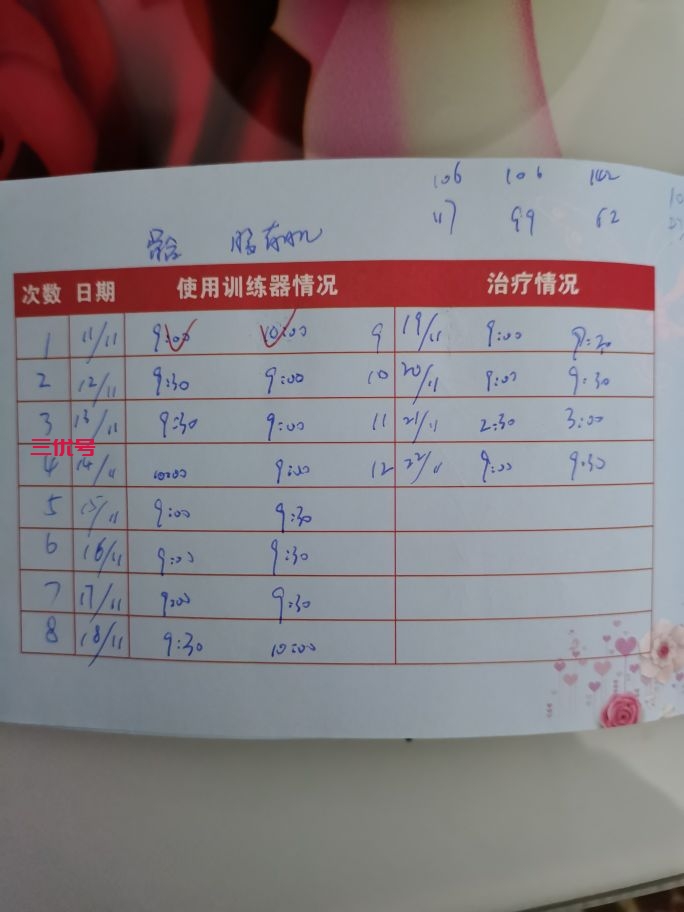 106 106 142
47 99 62
次数 日期 使用训练器情况 治疗情况
1 11/11 9:00 10:00 9 19/11 9:00 9:30
2 12/11 9:30 9:00 10 20/11 9:00 9:30
3 13/11 9:30 9:00 11 21/11 2:30 3:00
三优号
4 14/11 10:00 9:00 12 22/11 9:00 9:30
5 15/11 9:00 9:30
6 16/11 9:00 9:30
7 17/11 9:00 9:30
8 18/11 9:30 10:00